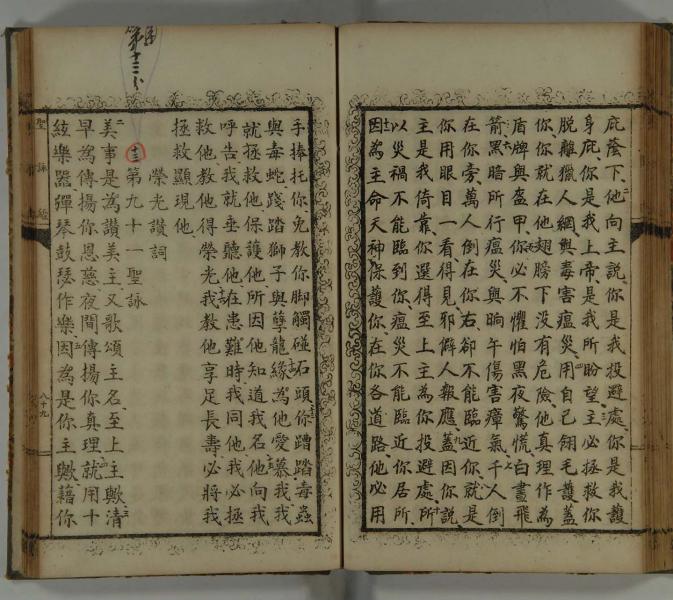 庇蔭下、他向主說、你是我投避處、你是我護
身庇、你是我上帝、是我所盼望、主必拯救你
脫離獵人網與毒害瘟災、用自己翎毛護蓋
你、你就在他翅膀下没有危險、他真理作為
盾牌與盔甲、你必不懼怕黑夜驚慌、白晝飛
箭、黑暗所行瘟災、與晌午傷害瘴氣、千人倒
在你旁、萬人倒在你右、卻不能臨近你、就是
你用眼目一看、得見邪僻人報應、蓋因你說、
主是我倚靠、你選得至上主為你投避處、所
以災禍不能臨到你、瘟災不能臨近你居所、
因為主命天神保護你、在你各道路、他必用
手捧托你、免教你脚觸碰石頭、你蹧踏毒蟲
與毒蛇、踐踏獅子與孽龍、緣為他愛慕我、我
就拯救他、保護他、所因他知道我名、他向我
呼告、我就垂聽他、在患難時、我同他、我必拯
救他、教他得榮光、我教他享足長壽、必將我
拯救顯現他、
榮光讚詞
十三 第九十一聖詠
美事是為讚美主、又歌頌主名、至上主歟、清
早為傳揚你恩慈、夜間傳揚你真理、就用十
絃樂器、彈琴鼓瑟作樂、因為是你主歟、藉你
聖詠經
八十九
第十三